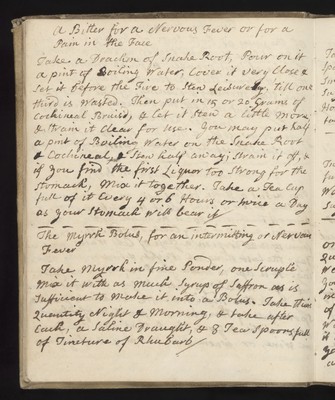 A Bitter for a Nervous Fever or for a
Pain in the Face
Take a Drachm of Snake Root, Pour on it
a pint of Boiling Water, Cover it very Close &
Set it before the Fire to Stew Leisurely, till one
third is Wasted. Then put in 15 or 20 Grams of
Cochineal Bruisd, & let it Stew a little more,
& Strain it Clear for Use. You may put half
a pint of Boiling Water on the Snake Root
& Cochineal, & Stew half away; Strain it off, &
if you find the first Liquor too Strong for the
Stomach, Mix it together. Take a Tea Cup
full of it Every 4 or 6 Hours, or twice a Day
as your Stomach will bear it
The Myrrh Bolus, for an intermitting or Nervous
Fever
Take Myrrh in fine Powder, one Scruple
Mix it with as much Syrup of Saffron as is
Sufficient to Make it into a Bolus. Take this
Quantity Night & Morning, & take after
Each, a Saline Draught, & 8 Tea Spoons full
of Tincture of Rhubarb